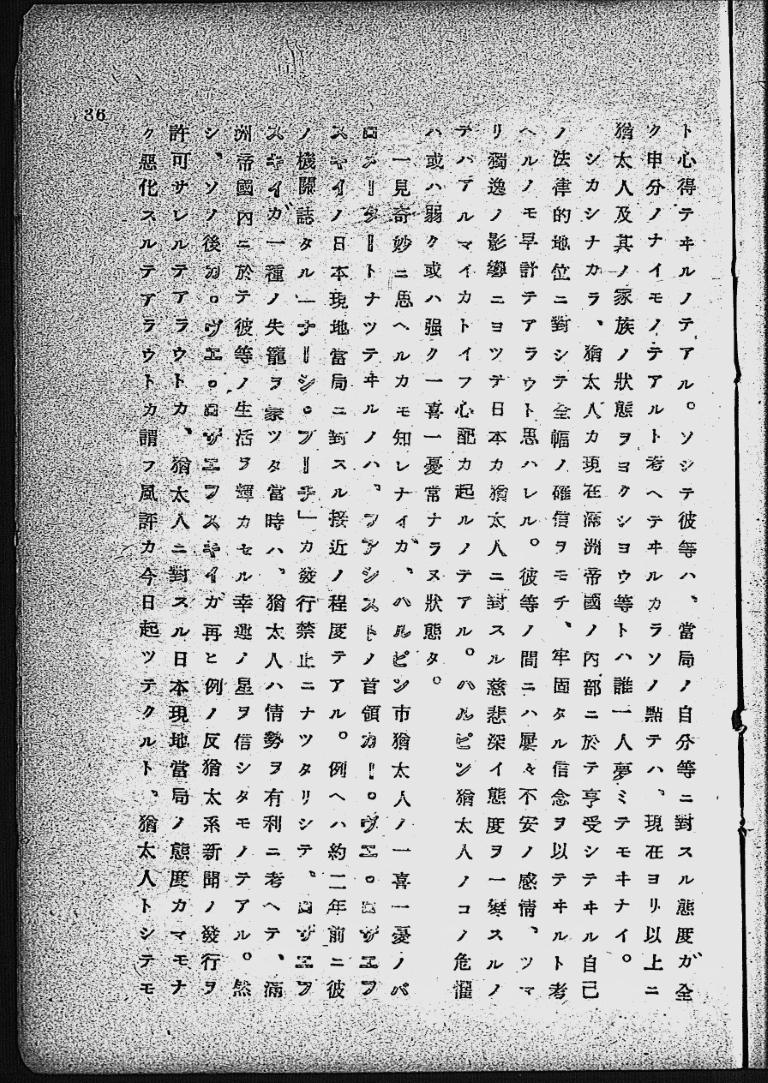 ト心得テヰルノテアル。ソシテ彼等ハ、當局ノ自分等ニ對スル態度ガ全
ク申分ノナイモノテアルト考ヘテヰルカラソノ點テハ、現在ヨリ以上ニ
猶太人及其ノ家族ノ狀態ヲヨクシヨウ等トハ誰一人夢ミテモヰナイ。
シカシナカラ、猶太人カ現在滿洲帝國ノ內部ニ於テ享受シテヰル自己
ノ法律的地位ニ對シテ全幅ノ確信ヲモチ、牢固タル信念ヲ以テヰルト考
ヘルノモ早計テアラウト思ハレル。彼等ノ間ニハ屢々不安ノ感情、ツマ
リ獨逸ノ影響ニヨツテ日本カ猶太人ニ對スル慈悲深イ態度ヲ一變スルノ
テハアルマイカトイフ心配カ起ルノテアル。ハルピン猶太人ノコノ危惧
ハ或ハ弱ク或ハ强ク一喜一憂常ナラヌ狀態タ。
一見奇妙ニ思ヘルカモ知レナイガ、ハルピン市猶太人ノ一喜一憂ノバ
ロメータートナツテヰルノハ、フアシストノ首領カー。ヴエ。ロザエフ
スキイノ日本現地當局ニ對スル接近ノ程度テアル。例ヘハ約二年前ニ彼
ノ機關誌タル「ナーシ。プーチ」カ發行禁止ニナツタリシテ、ロザエフ
スキイガ一種ノ失寵ヲ蒙ツタ當時ハ、猶太人ハ情勢ヲ有利ニ考ヘテ、滿
洲帝國內ニ於テ彼等ノ生活ヲ輝カセル幸運ノ星ヲ信シタモノテアル。然
シ、ソノ後カ。ヴエ。ロザエフスキイガ再ヒ例ノ反猶太系新聞ノ發行ヲ
許可サレルテアラウトカ、猶太人ニ對スル日本現地當局ノ態度カマモナ
ク惡化スルテアラウトカ謂フ風評カ今日起ツテクルト、猶太人トシテモ
36